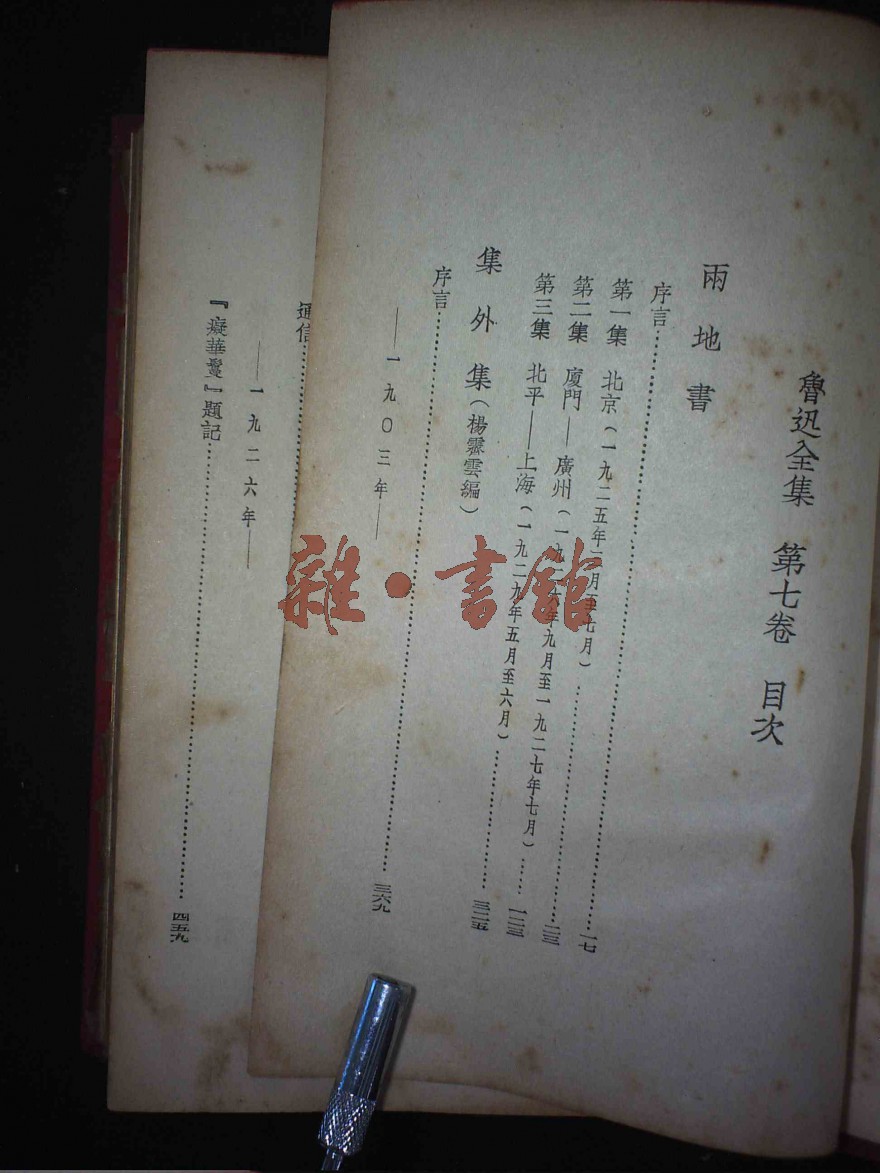 魯迅全集　第七卷　目次
兩地書
序言……一七
第一集　北京(一九二五年三月至七月)……二三
第二集　廈門——廣州(一九二六年九月至一九二七年七月)……一二三
第三集　北平——上海(一九二九年五月至六月)……三二五
集外集(楊霽雲編)
序言……三六九
——一九〇三年——
通信……
——一九二六年——
『癡華鬘』題記……四五九
雜·書館